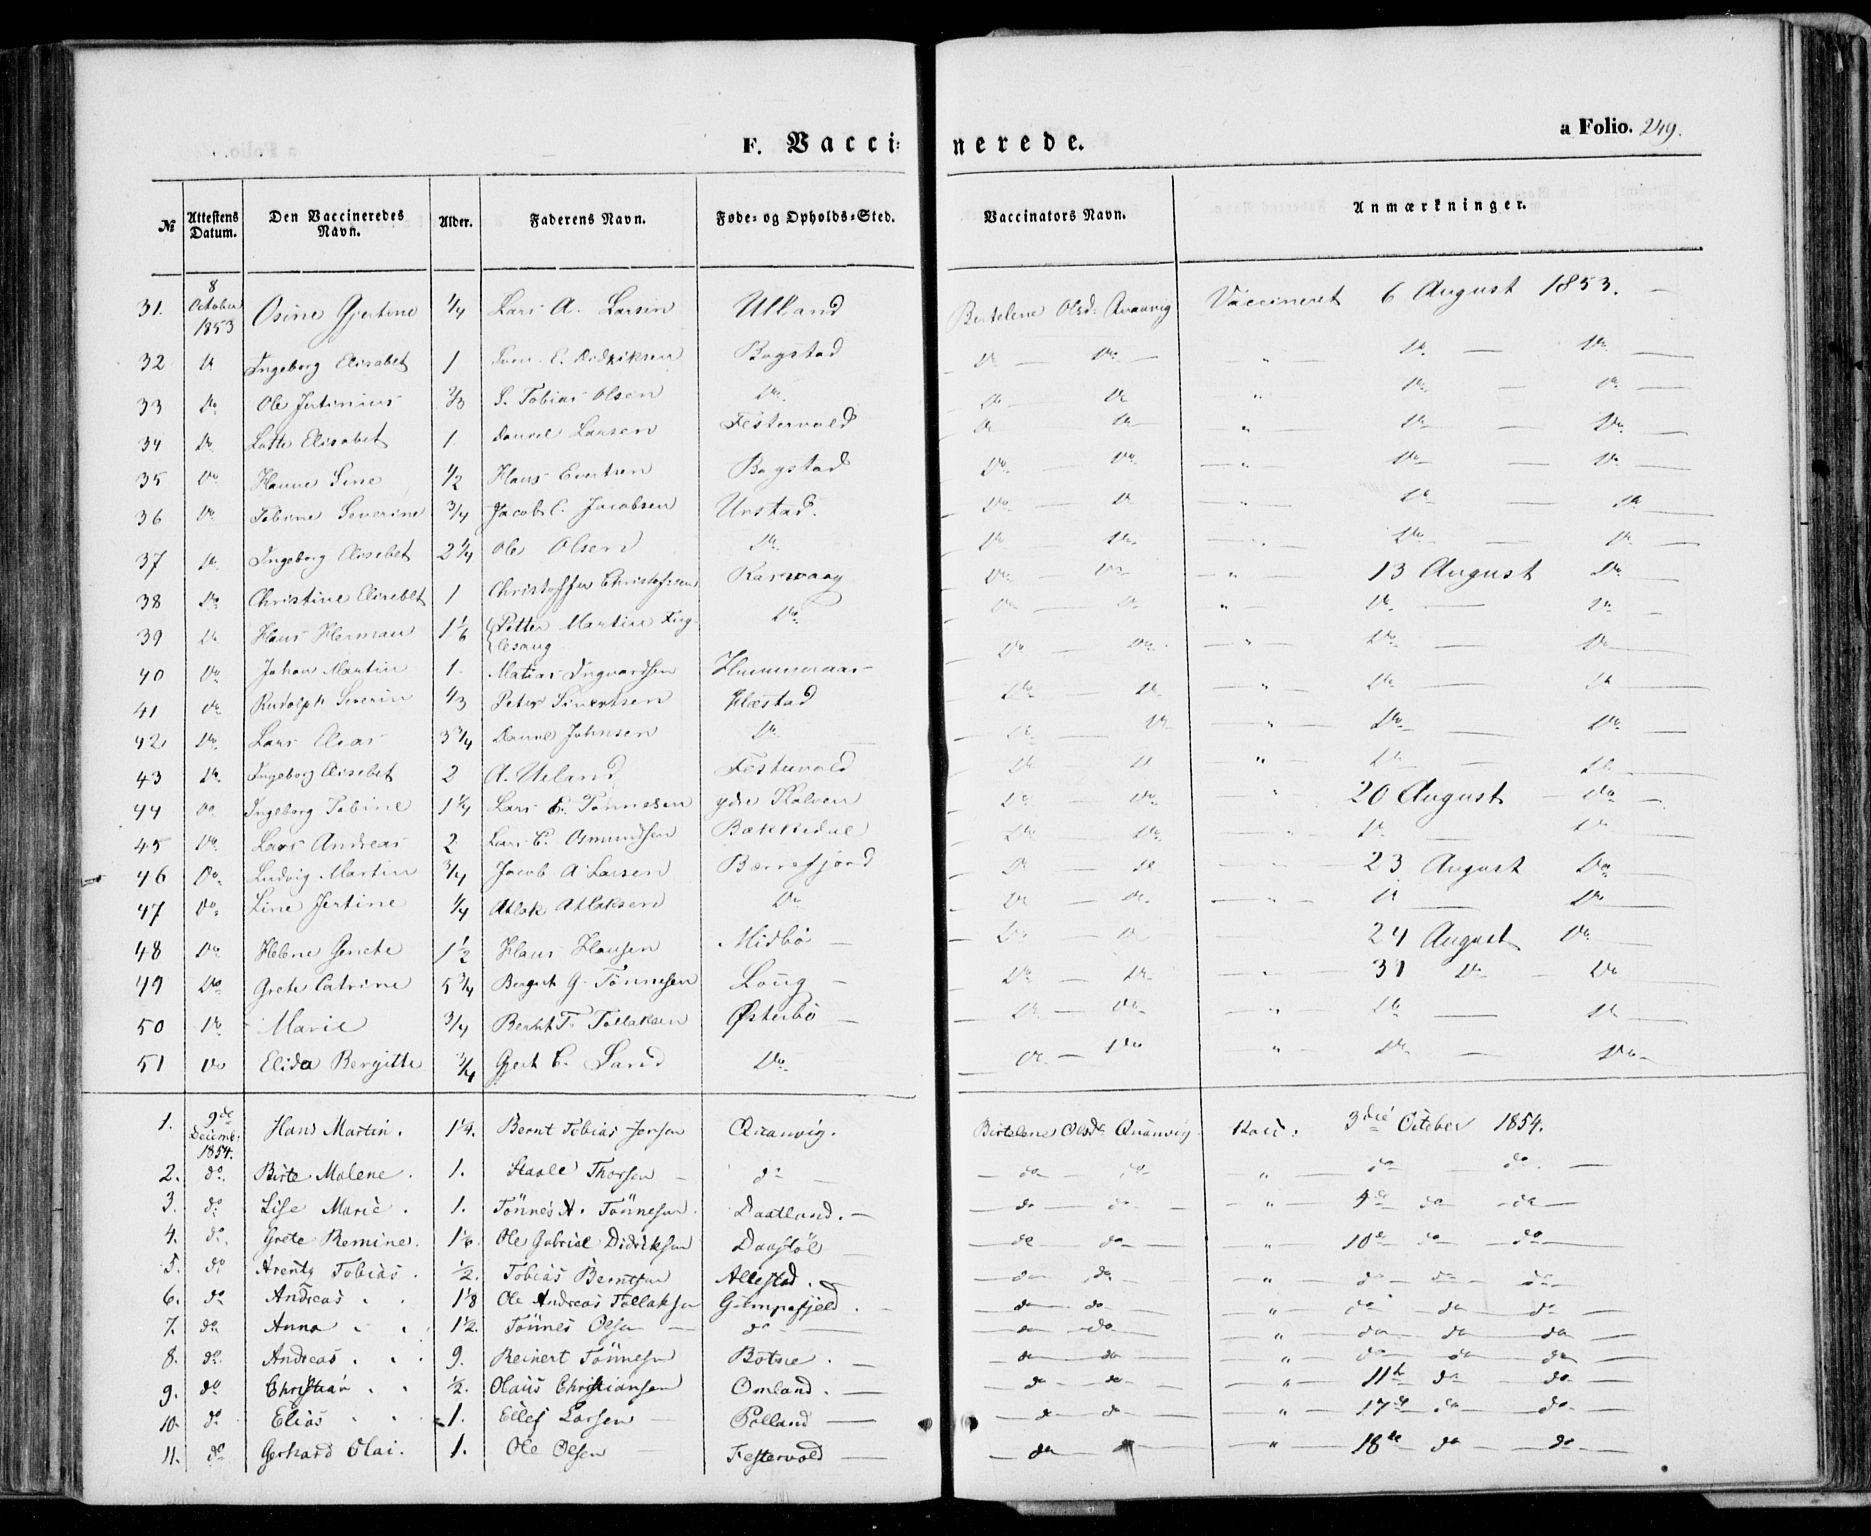 F. Vaccinerede.
a Folio. 249.
№ | Attestens Datum. | Den Vaccineredes Navn. | Alder. | Faderens Navn. | Føde- og Opholds-Sted. | Vaccinators Navn. | Anmærkninger.
31. | 8 October 1853 | Osine Gjertine | 1/4 | Lars A. Larsen | Ulland | Bertelene Olsd. Qvanvig | Vaccineret 6 August 1853. —
32 | Do | Ingeborg Elisabet | 1 | Sven E. Didriksen | Bogstad | Do — Do — | " Do — Do —
33 | Do | Ole Jertinius | 2/3 | S. Tobias Olsen | Do. | Do — Do | " Do — Do —
34 | Do | Lotte Elisabet | 1 | Daniel Larsen | Festervold | Do Do — | " — Do — Do —
35 | Do | Hanne Sine | 1/2 | Hans Evertsen | Bogstad | Do — Do | — " — Do — Do —
36 | Do | Tobine Severine | 3/4 | Jacob C. Jacobsen | Urstad. | Do — Do | — " — Do — Do
37 | Do | Ingeborg Elisebet | 2 1/4 | Ole Olsen | Do. | Do Do | — " — Do — Do
38 | Do | Christine Elisebet | 1 | Christoffer Christofersen | Rasvaag | Do Do | — " — 13 August Do —
39 | Do | Hans Herman | 1 1/6 | Petter Martin Fuglesang | Do. | Do — Do | " — Do — Do —
40 | Do | Johan Martin | 1. | Matias Ingvardsen | Hummeraas | Do — Do | — " — Do — Do
41 | Do | Rudolph Severin | 1/3 | Peter Sivertsen | Hæstad | Do Do | — " — Do — Do
42 | Do | Lars Elias | 3 3/4 | Daniel Johnsen | Do | Do Do | — " — Do — Do
43 | Do | Ingeborg Elisebet | 2 | A. Ueland | Festervold | Do Do | " — Do — Do
44 | Do | Ingeborg Tobine | 1 1/4 | Lars E. Tønnesen | ydre Kalven | Do — Do | " — 20 August — Do —
45 | Do | Lars Andreas | 2 | Lars E. Osmundsen | Bækkedal | Do — Do | Do — Do
46 | Do | Ludvig Martin | 3/4 | Jacob A Larsen | Børrefjord | Do — Do | — 23 August Do
47 | Do | Line Jertine | 1/4 | Atlak Atlaksen | Do | Do — Do | — " — Do — Do
48 | Do | Helene Grete | 1 1/2 | Hans Hansen | Midbø — | Do — Do | 24 August Do —
49 | Do | Grete Catrine | 5 3/4 | Berget G. Tønnesen | Loug — | Do — Do | — " — 31 Do — Do
50 | Do | Marie | 3/4 | Berent T. Tollaksen | Østerbø — | Do — Do | — " — Do — Do
51 | Do | Elida Bergitte | 3/4 | Gjert C. Sand | Do. | Do — Do | " — Do — Do —
1. | 9de Decembr 1854. | Hans Martin. | 1 1/2. | Bernt Tobias Jensen | Qvanvig. | Bertelene Olsdr Qvanvig. | Vacc: 3die October 1854.
2. | do. | Birte Malene. | 1. | Staale Thorsen — | do — | — do — do | " do — do. —
3. | do | Lise Marie. | 1. | Tönnes A. Tönnesen. | Daatland. — | — do — do. — | — " — 4de do — do —
4. | do. | Grete Remine. | 1 1/6. | Ole Gabriel Didriksen | Daastøl — | — do — do — | — " — 10de do — do —
5. | do | Arents Tobias. | 1/2. | Tobias Berntsen | Allestad. — | — do — do — | — " — do — do — do —
6. | do | Andreas . . | 1 1/8 | Ole Andreas Tollaksen | Gumpefjeld. — | — do — do — | — " — do — do — do —
7. | do | Anna . . | 1 1/2. | Tönnes Olsen — | do — | — do — do | — " — do — do — do —
8. | do. | Andreas . . | 9. | Reinert Tönnesen | Botne. — | — do — do — | — " — do — do — do —
9. | do | Christian . . | 1/2. | Olaus Christiansen | Omland. — | — do — do — | — " — 11te do — do —
10. | do | Elias . . | 1. | Eilef Larsen — | Rolland — | — do — do — | — " — 17de do — do —
11. | do | Gerhard Olai. | 1. | Ole Olsen — | Festervold — | — do — | — " — 18de do — do —